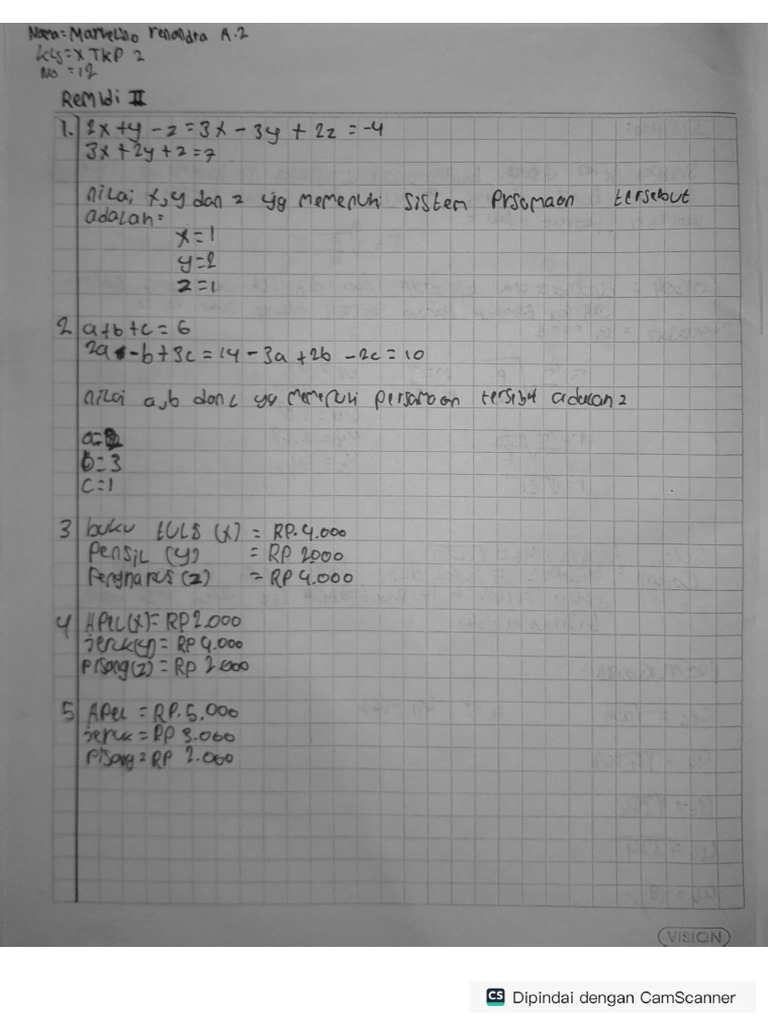 Nama = Markelino renandra A.2
kls = X TKP 2
No = 12
Remidi II
1. 2x + y - z = 3x - 3y + 2z = -4
3x + 2y + z = 7
nilai x, y dan z yg memenuhi sistem Prsamaan tersebut
adalah =
x = 1
y = 2
z = 1
2 a + b + c = 6
2a - b + 3c = 14 - 3a + 2b - 2c = 10
nilai a, b dan c yg memenuhi persamaan
b = 3
c = 1
3 buku tULS (x) = RP. 4.000
Pensil (y) = RP 2000
Penghapus (z) = RP 4.000
4 APeL (x) = RP 2.000
jeruk (y) = RP 4.000
Pisang (z) = RP 2.000
5 APeL = RP. 5.000
jeruk = RP 3.000
Pisang = RP 2.000
VISION
CS Dipindai dengan CamScanner